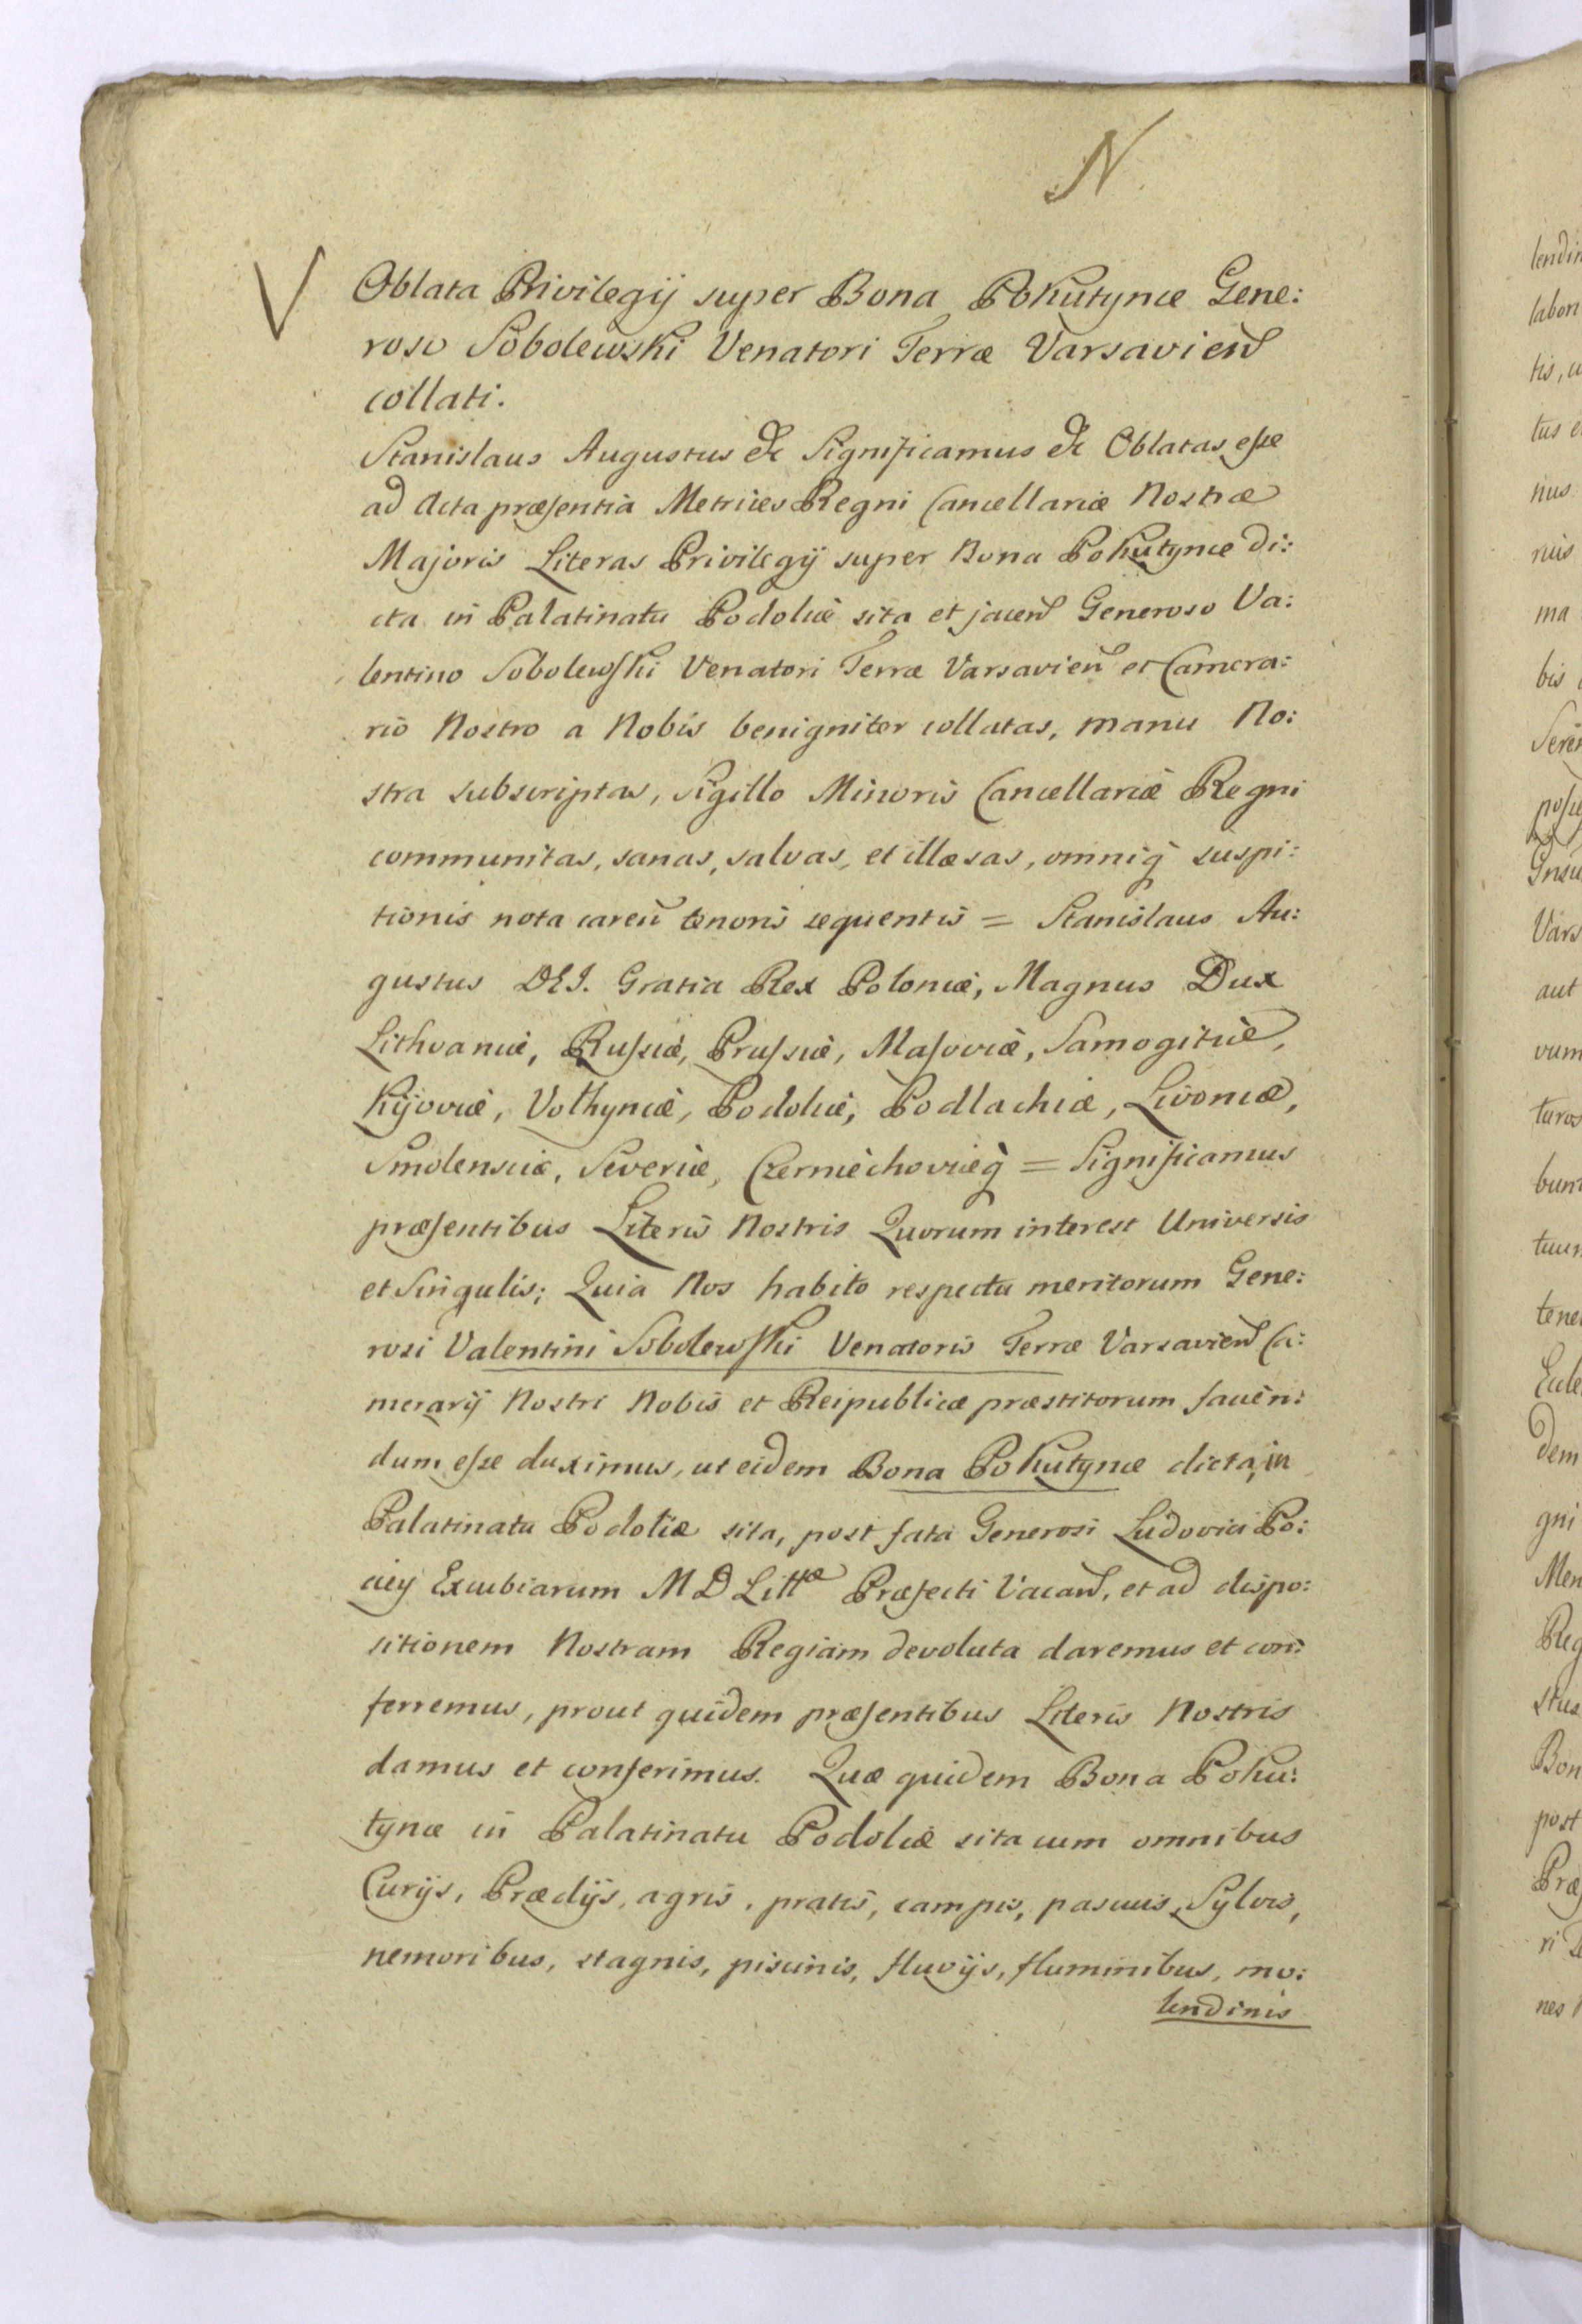 N
V
Oblata Privilegij super Bona Pohutynce Gene:
roso Sobolewski Venatori Terræ Varsavien
collati.
Stanislaus Augustus &c Significamus &c Oblatas eſse
ad Acta præſentia Metrices Regni Cancellariæ Nostræ
Majoris Literas Privilegij super Bona Pohutynce di:
cta in Palatinatu Podoliæ sita et jacen Generoso Va:
lentino Sobolewſki Venatori Terræ Varsavien et Camera:
rio Nostro a Nobis benigniter collatas, manu No:
stra subscriptas, Sigillo Minoris Cancellariæ Regni
communitas, sanas, salvas, et illæsas, omniq suspi:
tionis nota caren tenoris sequentis = Stanislaus Au:
gustus DEI. Gratia Rex Poloniæ, Magnus Dux
Lithvaniæ, Ruſsiæ, Pruſsiæ, Maſoviæ, Samogitiæ,
Kijoviæ, Volhyniæ, Podoliæ, Podlachiæ, Livoniæ,
Smolensciæ, Severiæ, Czerniechoviæq = Significamus
præſentibus Literis Nostris Quorum interest Universis
et Singulis; Quia Nos habito respectu meritorum Gene:
rosi Valentini Sobolewſki Venatoris Terræ Varsavien Ca:
merarij Nostri Nobis et Reipublicæ præstitorum faven:
dum eſse duximus, ut eidem Bona Pohutynce dicta, in
Palatinatu Podoliæ sita, post fata Generosi Ludovici Po:
ciej Excubiarum M D Littæ Præfecti Vacan, et ad dispo:
sitionem Nostram Regiam devoluta daremus et con:
ferremus, prout quidem præſentibus Literis Nostris
damus et conferimus. Quæ quidem Bona Pohu:
tynce in Palatinatu Podoliæ sita cum omnibus
Curijs, Prædijs, agris, pratis, campis, pascuis, Sylvis,
nemoribus, stagnis, piscinis, fluvijs, fluminibus, mo:
lendinis